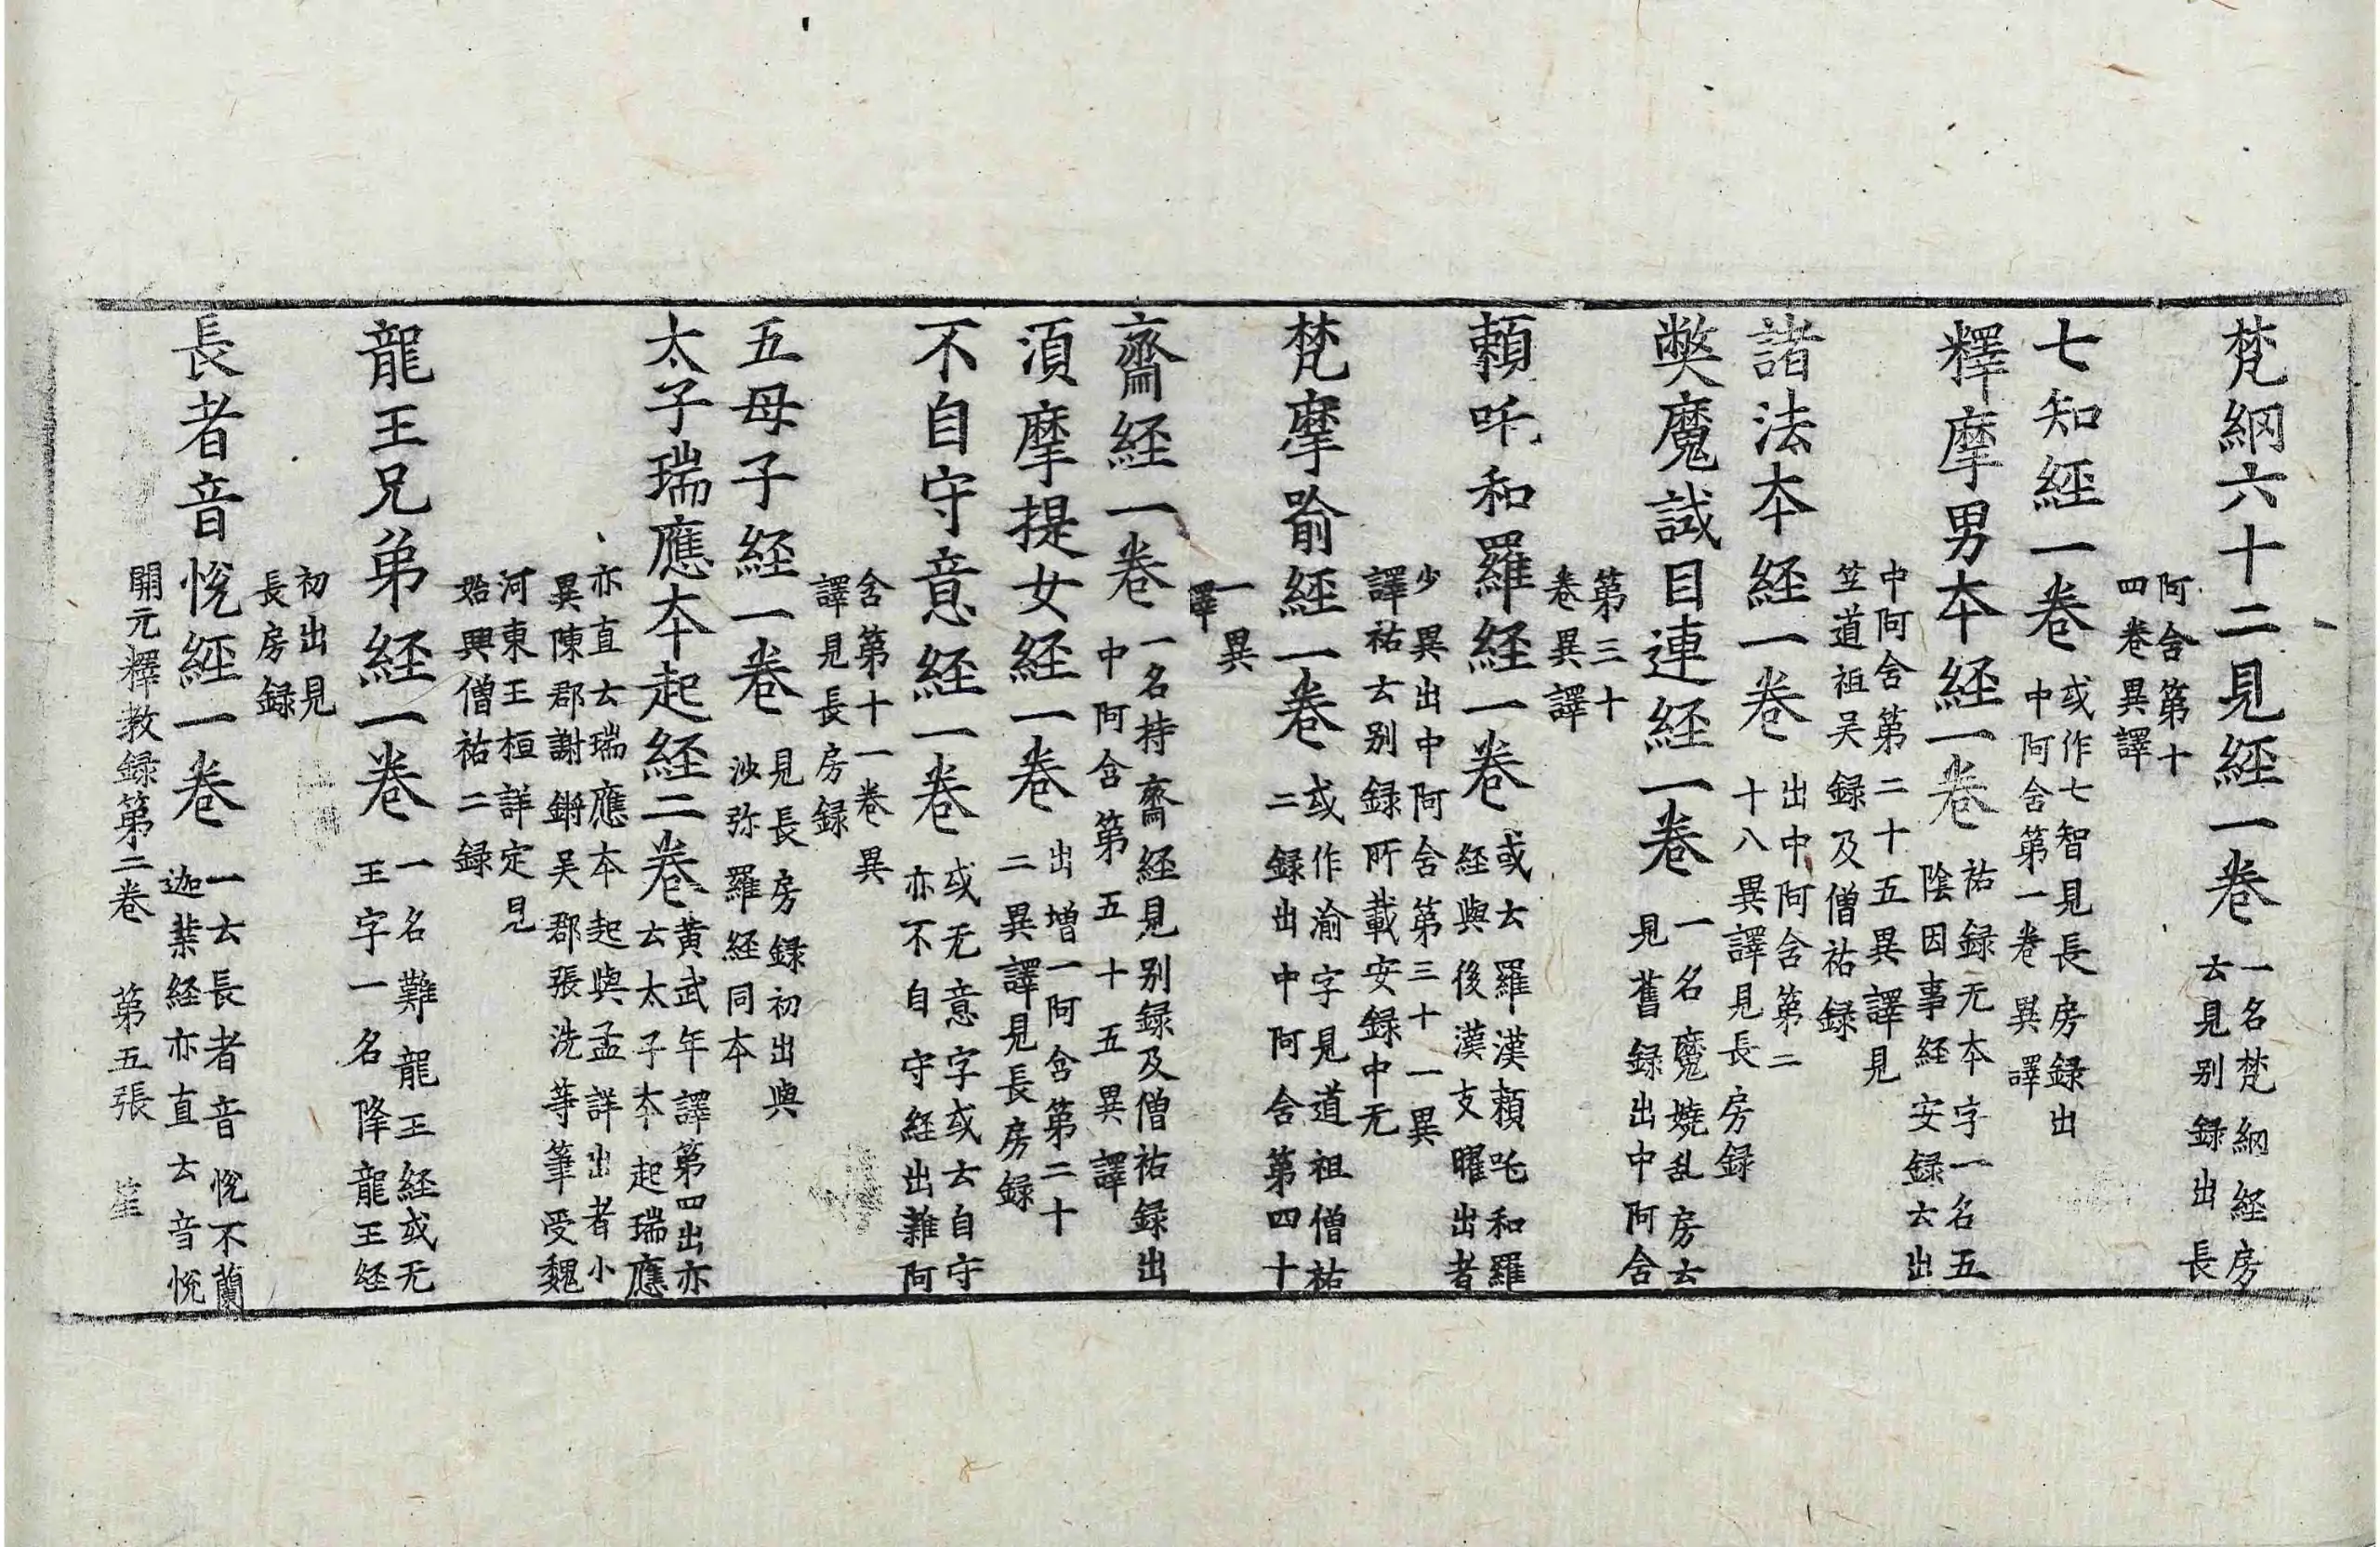 梵綱六十二見経一卷 一名梵綱経房
云見别録出長
阿含第十
四卷異譯
七知経一卷 或作七智見長房録出
中阿含第一卷異譯
釋摩男本経一卷 祐録无本字一名五
陰因事経安録云出
中阿含第二十五異譯見
笠道祖吴録及僧祐録
諸法本経一卷 出中阿含第二
十八異譯見長房録
弊魔試目連経一卷 一名魔嬈乱房云
見舊録出中阿含
第三十
卷異譯
頼吒和羅経一卷 或云羅漢頼吒和羅
経與後漢支曜出者
少異出中阿含第三十一異
譯祐云别録所載安録中无
梵摩喻経一卷 或作渝字見道祖僧祐
二録出中阿含第四十
一異
譯
齋経一卷 一名持齋経見别録及僧祐録出
中阿含第五十五異譯
湏摩提女経一卷 出增一阿含第二十
二異譯見長房録
不自守意経一卷 或无意字或云自守
亦不自守経出雜阿
含第十一卷異
譯見長房録
五母子経一卷 見長房録初出與
沙弥羅経同本
太子瑞應本起経二卷 黄武年譯第四出亦
云太子本起瑞應
亦直云瑞應本起與孟詳出者小
異陳郡謝鏘吴郡張洗等筆受魏
河東王桓詳定見
始興僧祐二録
龍王兄弟経一卷 一名難龍王経或无
王字一名降龍王経
初出見
長房録
長者音悦経一卷 一云長者音悦不蘭
迦葉経亦直云音悦
開元釋教録第二卷 第五張